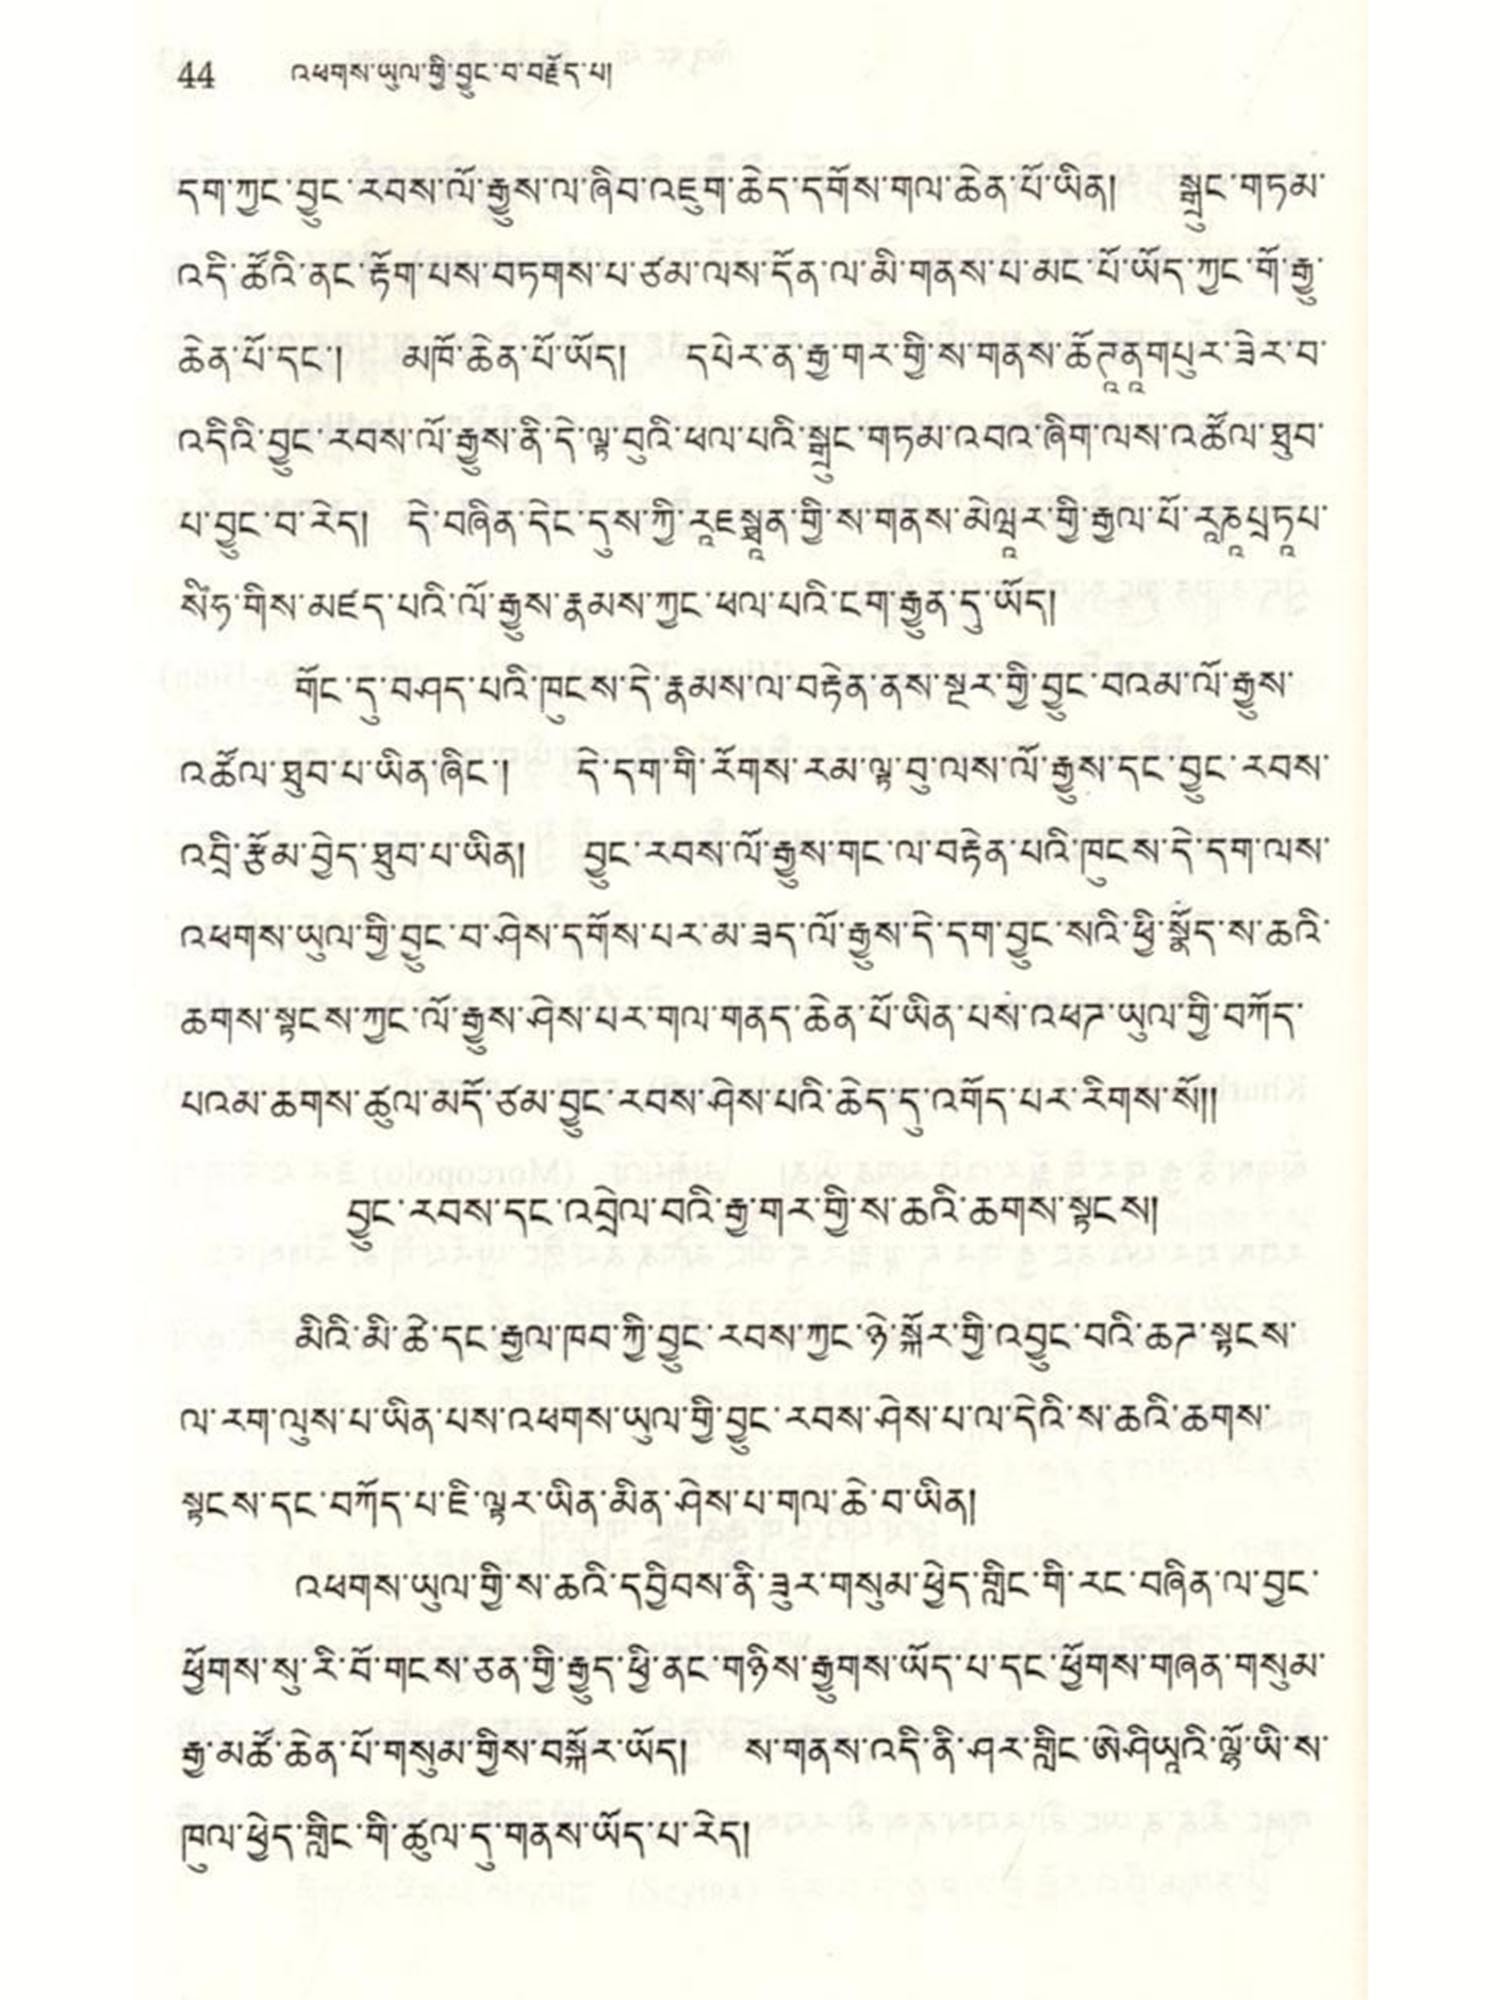 44 འཕགས་ཡུལ་གྱི་བྱུང་བ་བརྗོད་པ།
དག་ཀྱང་བྱུང་རབས་ལོ་རྒྱུས་ལ་ཞིབ་འཇུག་ཆེད་དགོས་གལ་ཆེན་པོ་ཡིན། སྒྲུང་གཏམ་
འདི་ཚོའི་ནང་རྟོག་པས་བཏགས་པ་ཙམ་ལས་དོན་ལ་མི་གནས་པ་མང་པོ་ཡོད་ཀྱང་གོ་རྒྱུ་
ཆེན་པོ་དང་། མཁོ་ཆེན་པོ་ཡོད། དཔེར་ན་རྒྱ་གར་གྱི་ས་གནས་ཟེར་བ་
འདིའི་བྱུང་རབས་ལོ་རྒྱུས་ནི་དེ་ལྟ་བུའི་ཕལ་པའི་སྒྲུང་གཏམ་འབའ་ཞིག་ལས་འཚོལ་ཐུབ་
པ་བྱུང་བ་རེད། དེ་བཞིན་དེང་དུས་ཀྱི་རཱཇསྠཱན་གྱི་ས་གནས་མེཝཱར་གྱི་རྒྱལ་པོ་
སིཾཧ་གིས་མཛད་པའི་ལོ་རྒྱུས་རྣམས་ཀྱང་ཕལ་པའི་ངག་རྒྱུན་དུ་ཡོད།
གོང་དུ་བཤད་པའི་ཁུངས་དེ་རྣམས་ལ་བརྟེན་ནས་སྔར་གྱི་བྱུང་བའམ་ལོ་རྒྱུས་
འཚོལ་ཐུབ་པ་ཡིན་ཞིང་། དེ་དག་གི་རོགས་རམ་ལྟ་བུ་ལས་ལོ་རྒྱུས་དང་བྱུང་རབས་
འབྲི་རྩོམ་བྱེད་ཐུབ་པ་ཡིན། བྱུང་རབས་ལོ་རྒྱུས་གང་ལ་བརྟེན་པའི་ཁུངས་དེ་དག་ལས་
འཕགས་ཡུལ་གྱི་བྱུང་བ་ཤེས་དགོས་པར་མ་ཟད་ལོ་རྒྱུས་དེ་དག་བྱུང་སའི་ཕྱི་སྣོད་ས་ཆའི་
ཆགས་སྟངས་ཀྱང་ལོ་རྒྱུས་ཤེས་པར་གལ་གནད་ཆེན་པོ་ཡིན་པས་འཕཊ་ཡུལ་གྱི་བཀོད་
པའམ་ཆགས་ཚུལ་མདོ་ཙམ་བྱུང་རབས་ཤེས་པའི་ཆེད་དུ་འགོད་པར་རིགས་སོ།།
བྱུང་རབས་དང་འབྲེལ་བའི་རྒྱ་གར་གྱི་ས་ཆའི་ཆགས་སྟངས།
མིའི་མི་ཚེ་དང་རྒྱལ་ཁབ་ཀྱི་བྱུང་རབས་ཀྱང་ཉེ་སྐོར་གྱི་འབྱུང་བའི་ཆཊ་སྟངས་
ལ་རག་ལུས་པ་ཡིན་པས་འཕགས་ཡུལ་གྱི་བྱུང་རབས་ཤེས་པ་ལ་དེའི་ས་ཆའི་ཆགས་
སྟངས་དང་བཀོད་པ་ཇི་ལྟར་ཡིན་མིན་ཤེས་པ་གལ་ཆེ་བ་ཡིན།
འཕགས་ཡུལ་གྱི་ས་ཆའི་དབྱིབས་ནི་ཟུར་གསུམ་ཕྱེད་གླིང་གི་རང་བཞིན་ལ་བྱང་
ཕྱོགས་སུ་རི་བོ་གངས་ཅན་གྱི་རྒྱུད་ཕྱི་ནང་གཉིས་རྒྱུགས་ཡོད་པ་དང་ཕྱོགས་གཞན་གསུམ་
རྒྱ་མཚོ་ཆེན་པོ་གསུམ་གྱིས་བསྐོར་ཡོད། ས་གནས་འདི་ནི་ཤར་གླིང་ཨེ་ཤིཡཱའི་ལྷོ་ཡི་ས་
ཁུལ་ཕྱེད་གླིང་གི་ཚུལ་དུ་གནས་ཡོད་པ་རེད།